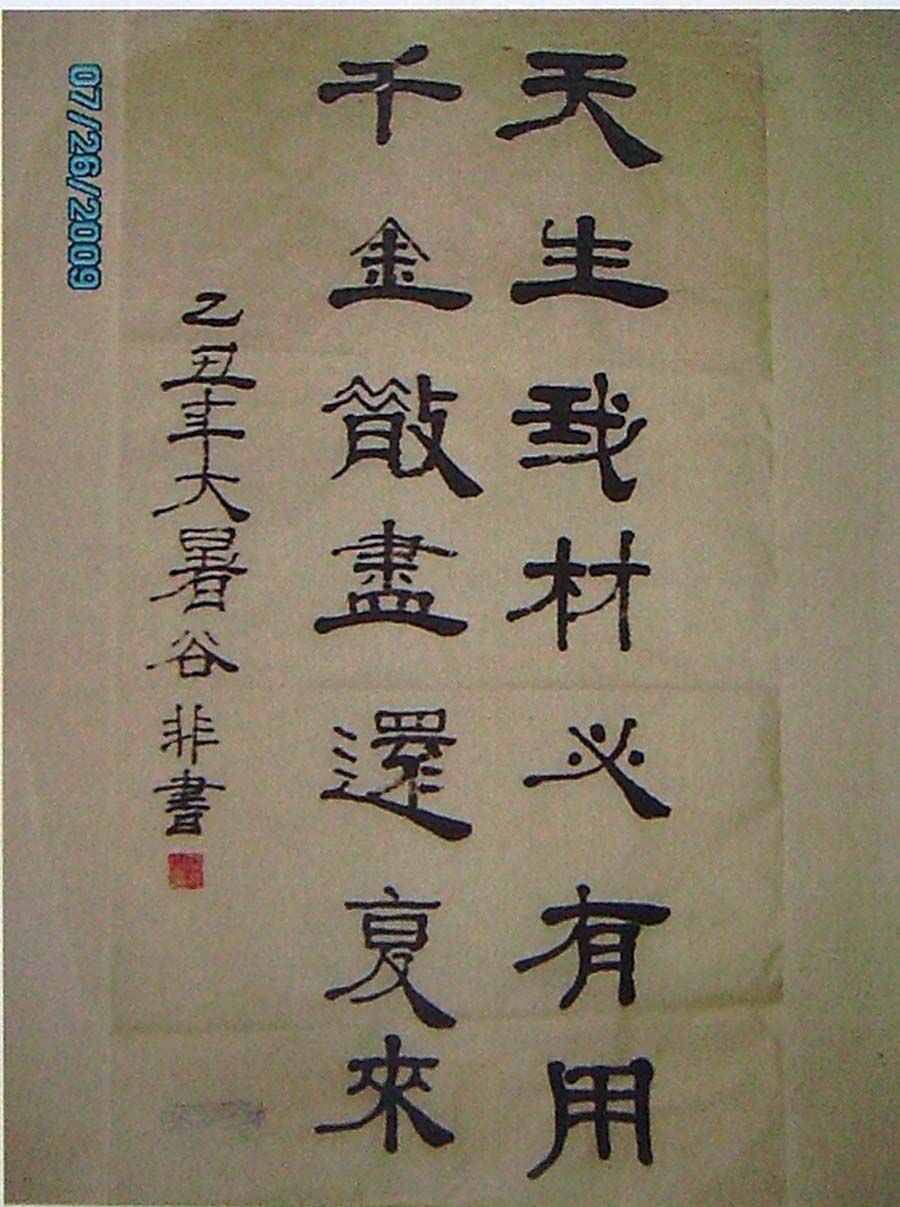 天生我材必有用
千金散盡還复來
乙丑年大暑谷非書
07/26/2009